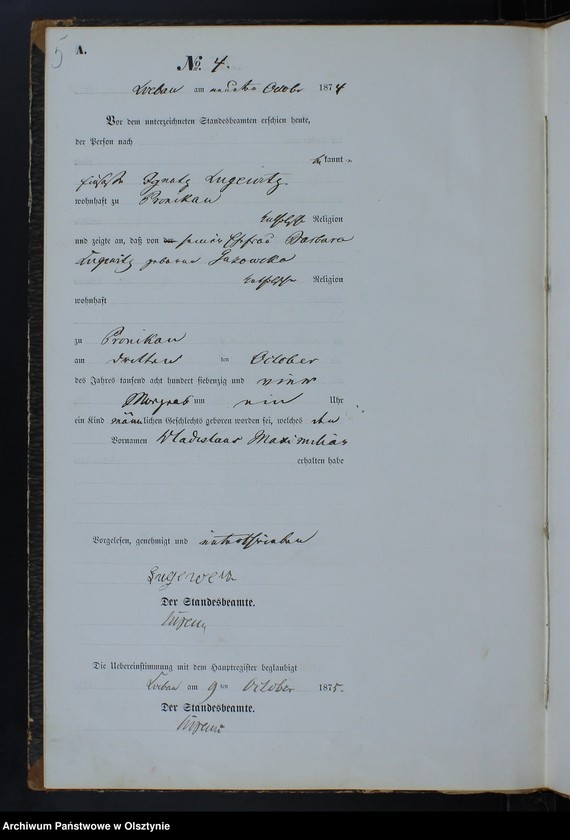 5
A.
No. 4.
Loebau am neunten October 1874
Vor dem unterzeichneten Standesbeamten erschien heute,
der Person nach
bekannt,
Ignatz Lugewitz
wohnhaft zu Pronikau
katholischer Religion
und zeigte an, daß von der seiner Ehefrau Barbara
Lugewitz geborne
katholischer Religion
wohnhaft
zu Pronikau
am dritten ten October
des Jahres tausend acht hundert siebenzig und vier
Morgens um ein Uhr
ein Kind männlichen Geschlechts geboren worden sei, welches den
Vornamen Wladislaus Maximilian
erhalten habe
Vorgelesen, genehmigt und unterschrieben
Der Standesbeamte.
Die Uebereinstimmung mit dem Hauptregister beglaubigt
Loebau am 9 ten October 1875.
Der Standesbeamte.
Archiwum Państwowe w Olsztynie